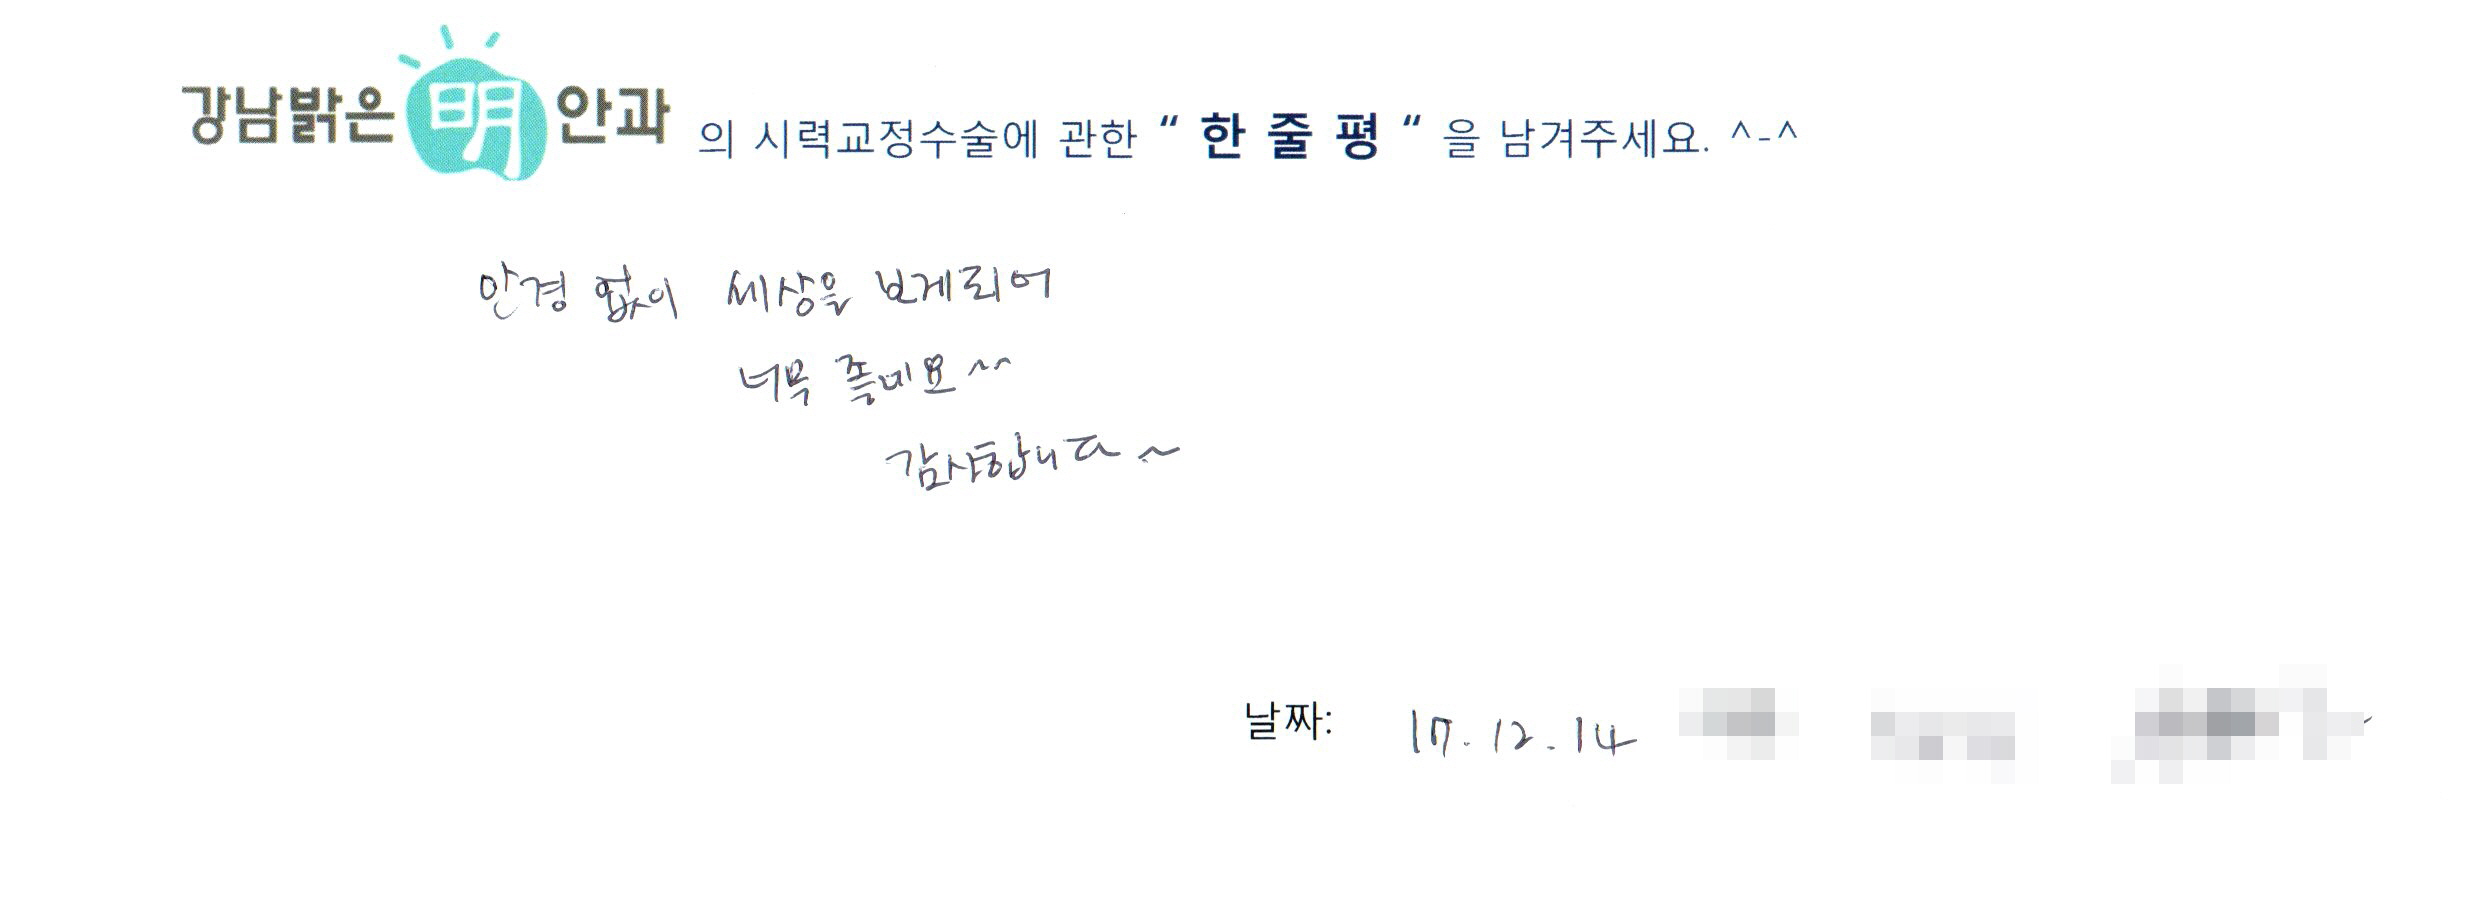 강남밝은明안과 의 시력교정수술에 관한 “ 한 줄 평 “ 을 남겨주세요. ^-^
안경 없이 세상을 보게되어
너무 좋네요 ^^
감사합니다 ~
날짜: 17. 12. 14